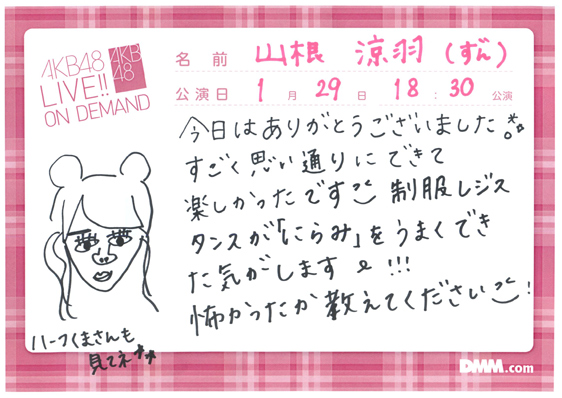 AKB48
LIVE!!
ON DEMAND
AKB
48
名前 山根 涼羽 (ずん)
公演日 1月29日 18:30公演
今日はありがとうございました。
すごく思い通りにできて
楽しかったです 制服レジス
タンスが「にらみ」をうまくでき
た気がします !!!
怖かったか教えてください !
ハーフくまさんも
見てネ
DMM.com